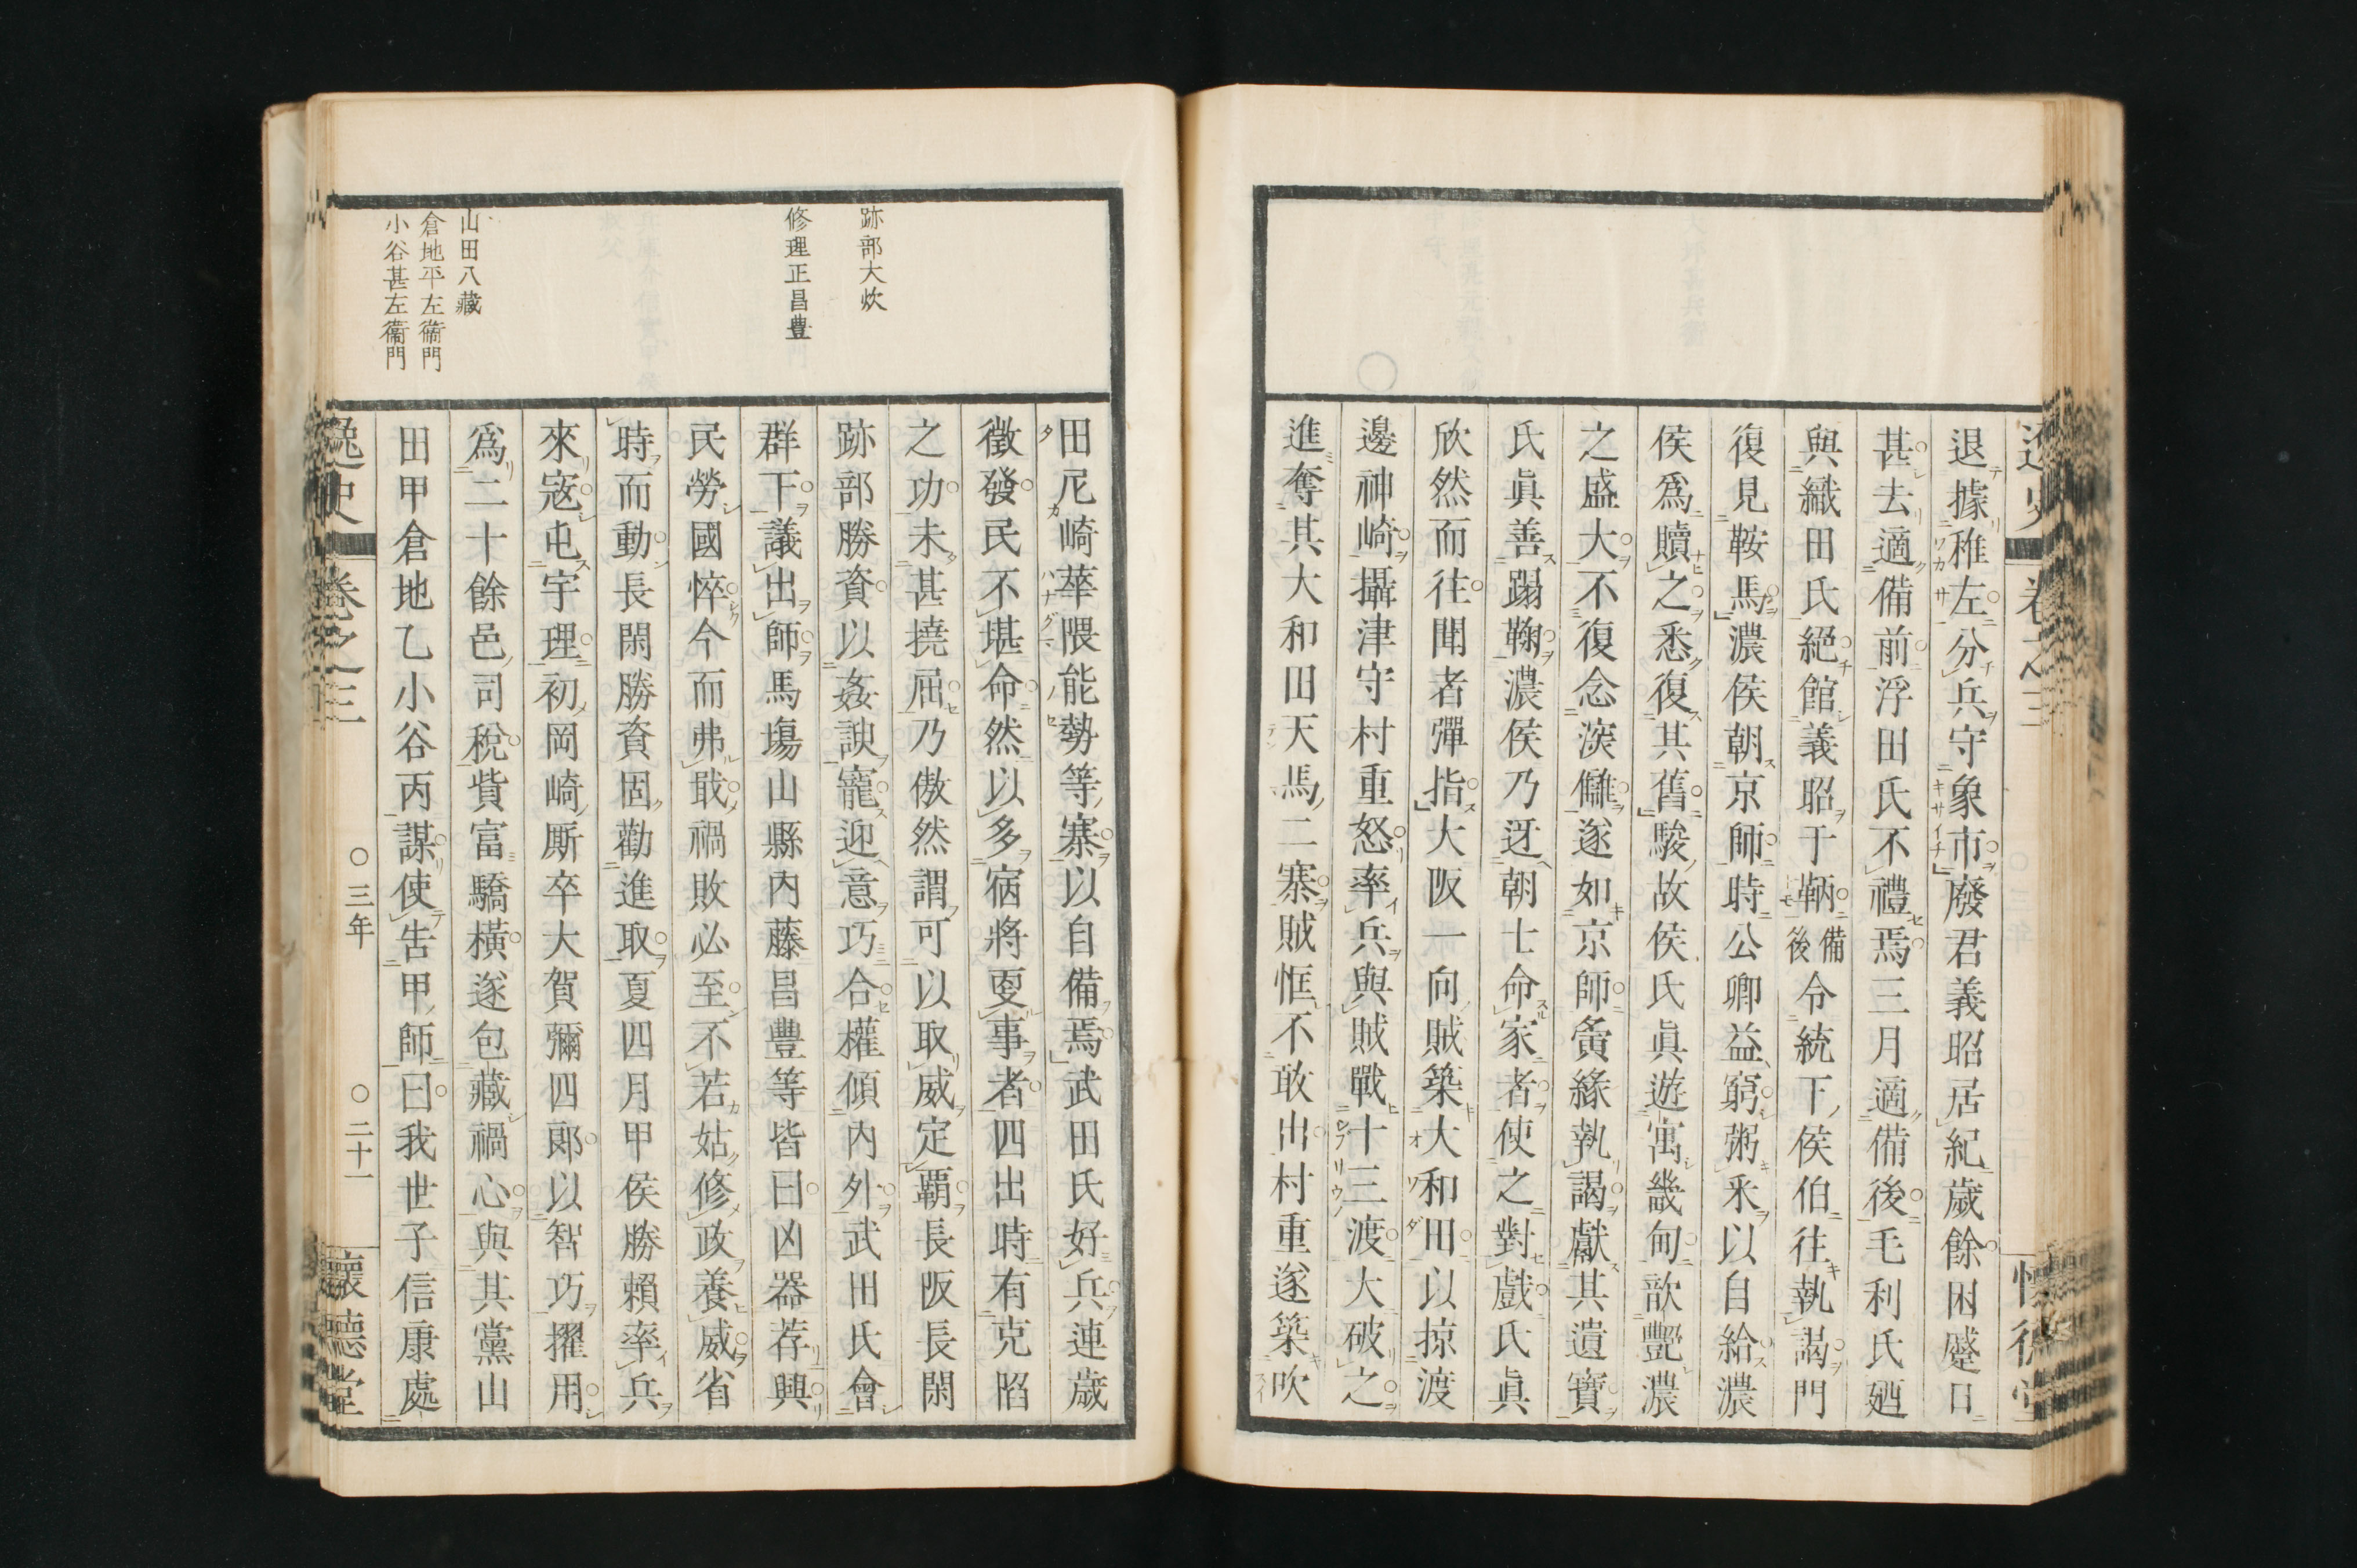 退據稚左分兵守象市廢君義昭居紀歲餘困蹙日
甚去適備前浮田氏不禮焉三月適備後毛利氏廼
與織田氏絕館義昭于鞆備後令統下侯伯往執謁門
復見鞍馬濃侯朝京師時公卿益窮粥釆以自給濃
侯爲贖之悉復其舊駿故侯氏眞遊寓畿甸歆艷濃
之盛大不復念深讎遂如京師夤緣執謁獻其遺寶
氏眞善蹋鞠濃侯乃迓朝士命家者使之對戲氏眞
欣然而往聞者彈指大阪一向賊築大和田以掠渡
邊神崎攝津守村重怒率兵與賊戰十三渡大破之
進奪其大和田天馬二寨賊恇不敢出村重遂築吹
田尼崎華隈能勢等寨以自備焉武田氏好兵連歲
徵發民不堪命然以多宿將耎事者四出時有克陷
之功未甚撓屈乃傲然謂可以取威定覇長阪長閑
跡部勝資以姦諛寵迎意巧合權傾內外武田氏會
群下議出師馬塲山縣內藤昌豐等皆曰凶器荐興
民勞國悴今而弗戢禍敗必至不若姑修政養威省
時而動長閑勝資固勸進取夏四月甲侯勝賴率兵
來寇屯宇理初岡崎厮卒大賀彌四郎以智巧擢用
爲二十餘邑司稅貲富驕橫遂包藏禍心與其黨山
田甲倉地乙小谷丙謀使告甲師曰我世子信康處
跡部大炊
修理正昌豊
山田八藏
倉地平左衞門
小谷甚左衞門
逸史 卷之三 ○三年 ○二十一 懷德堂